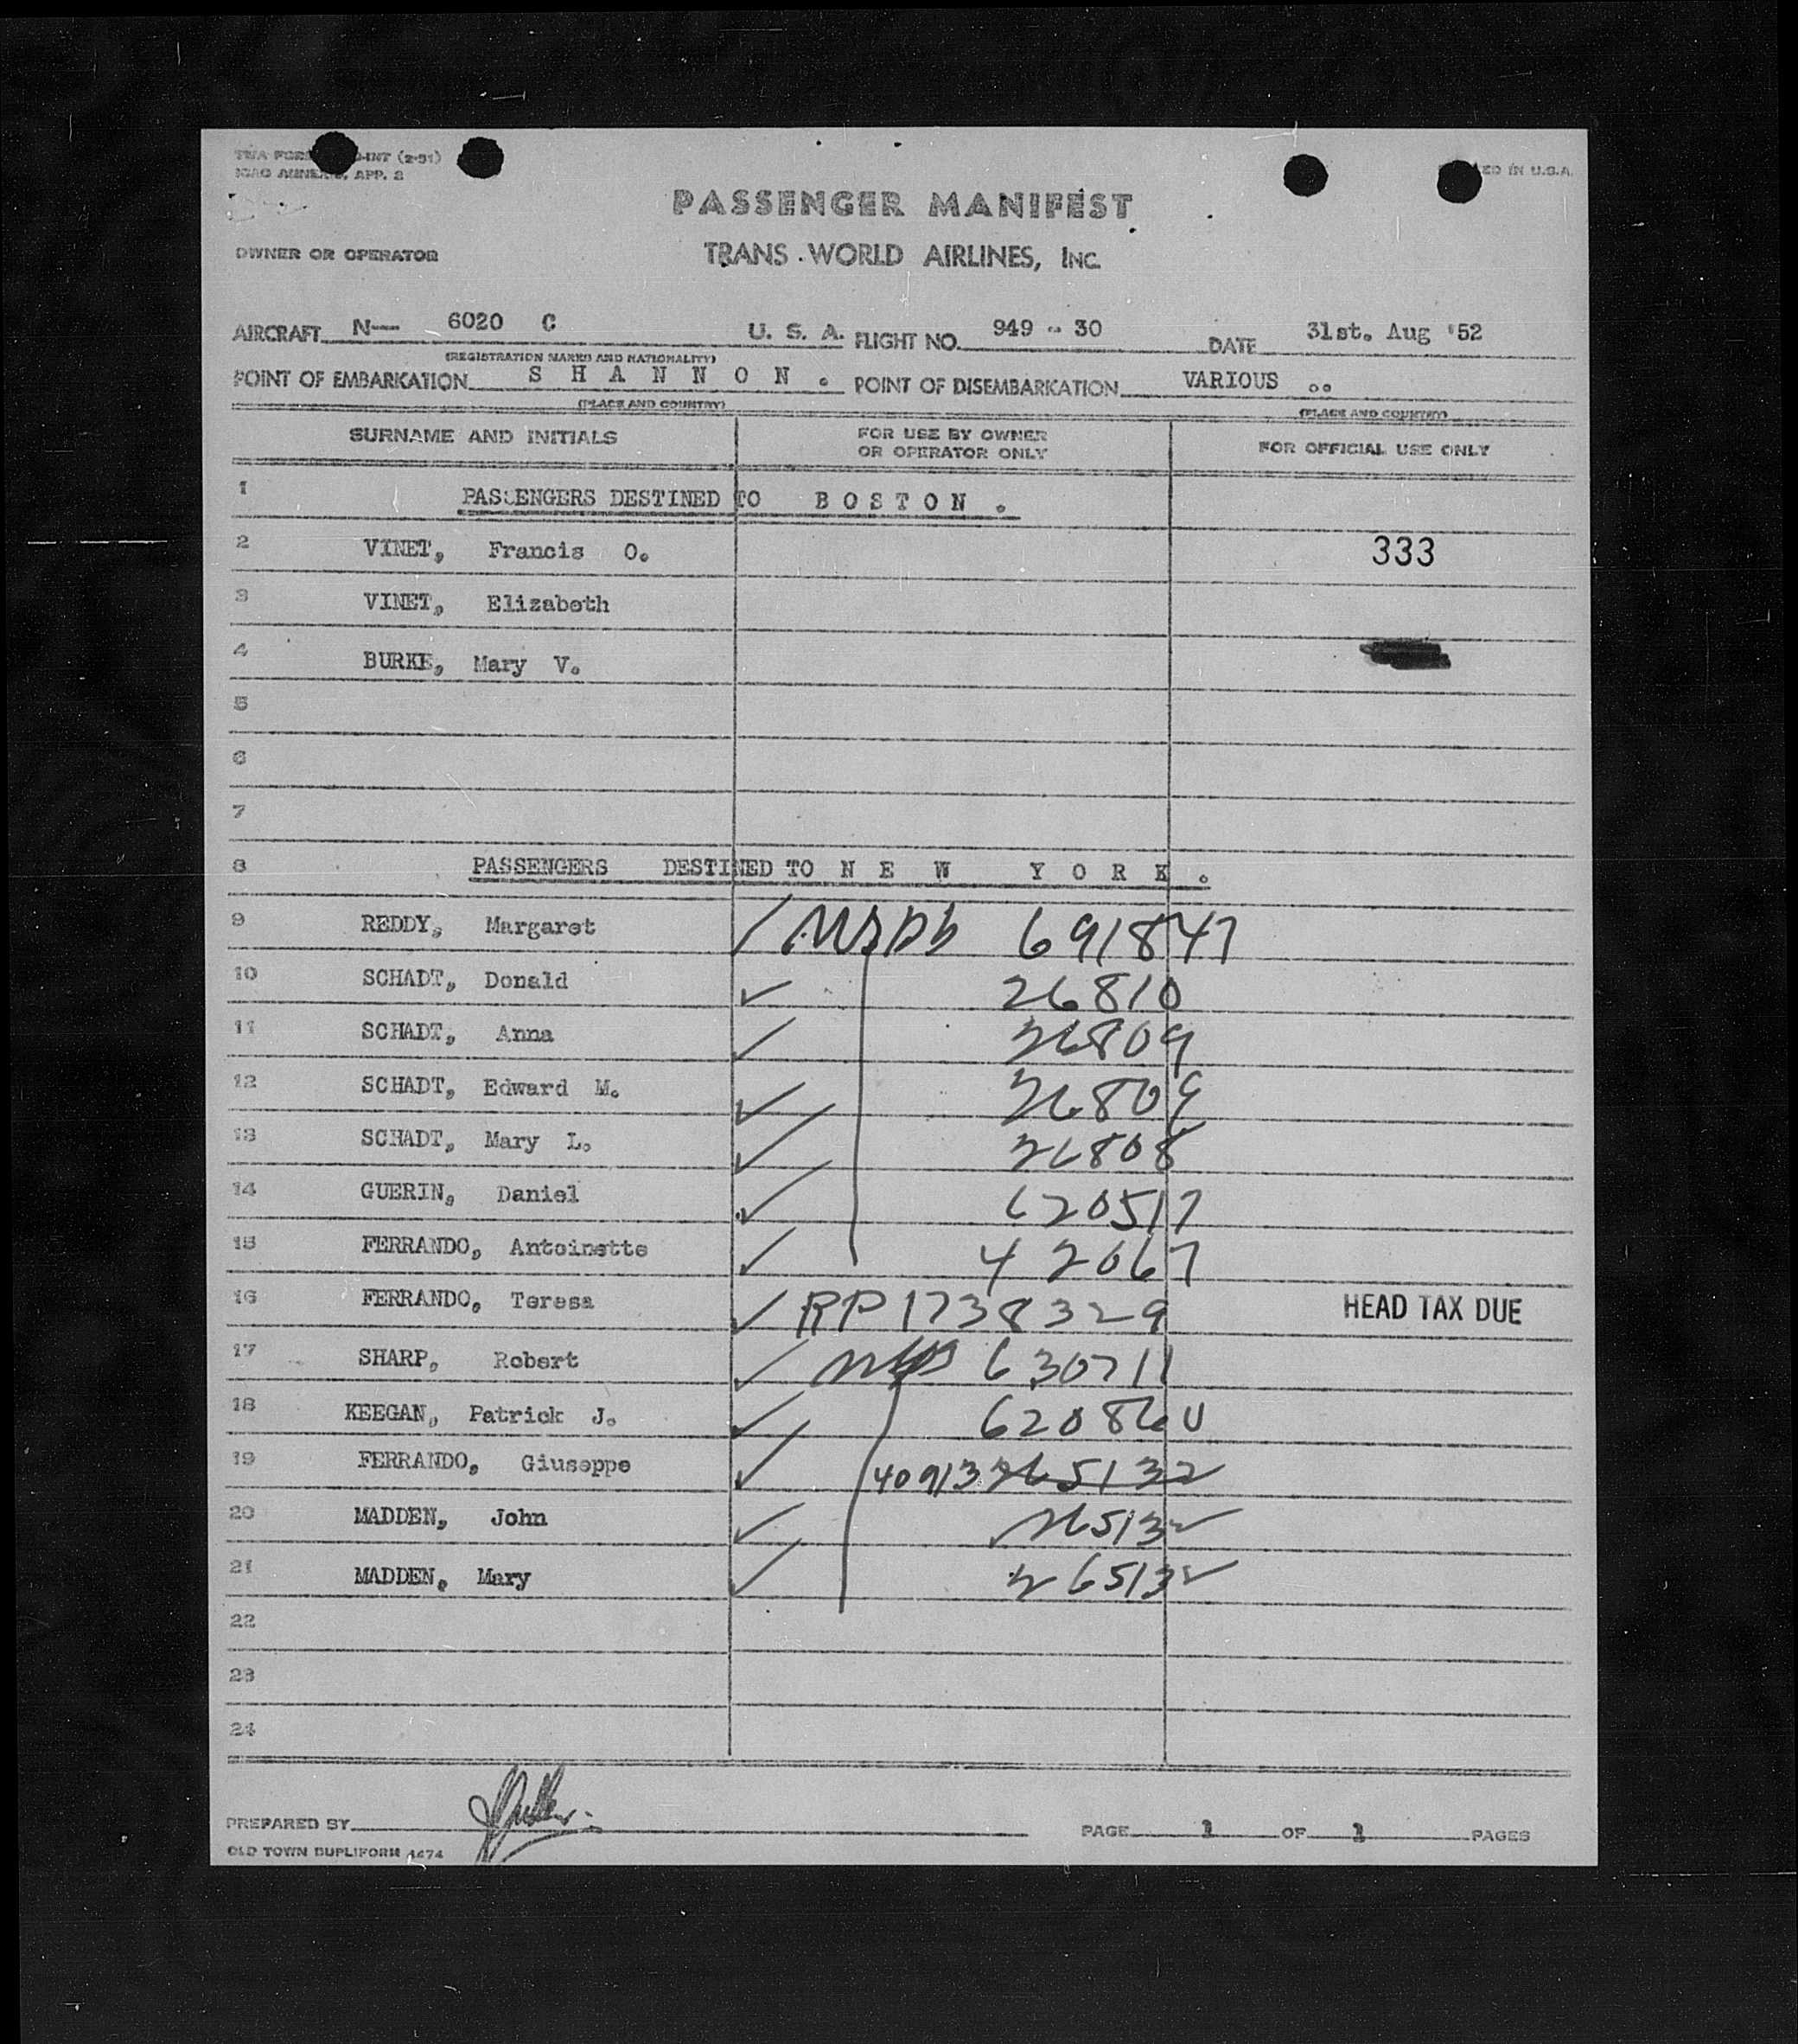 TWA FORM INT (2-51)
ICAO ANNEX 9, APP. 2
PRINTED IN U.S.A.
PASSENGER MANIFEST
OWNER OR OPERATOR TRANS WORLD AIRLINES, INC.
AIRCRAFT N— 6020 C U. S. A. FLIGHT NO. 949 - 30 DATE 31st. Aug '52
(REGISTRATION MARKS AND NATIONALITY)
POINT OF EMBARKATION S H A N N O N . POINT OF DISEMBARKATION VARIOUS ..
(PLACE AND COUNTRY) (PLACE AND COUNTRY)
SURNAME AND INITIALS FOR USE BY OWNER OR OPERATOR ONLY FOR OFFICIAL USE ONLY
1 PASSENGERS DESTINED TO B O S T O N .
2 VINET, Francis O. 333
3 VINET, Elizabeth
4 BURKE, Mary V.
5
6
7
8 PASSENGERS DESTINED TO N E W Y O R K .
9 REDDY, Margaret 691847
10 SCHADT, Donald 26810
11 SCHADT, Anna 26809
12 SCHADT, Edward M. 26809
13 SCHADT, Mary L. 26808
14 GUERIN, Daniel 620517
15 FERRANDO, Antoinette 42067
16 FERRANDO, Teresa RP 1738329 HEAD TAX DUE
17 SHARP, Robert 630711
18 KEEGAN, Patrick J. 620860
19 FERRANDO, Giuseppe 40913 265132
20 MADDEN, John 26513
21 MADDEN, Mary 26513
22
23
24
PREPARED BY PAGE 1 OF 1 PAGES
OLD TOWN DUPLIFORM 4474